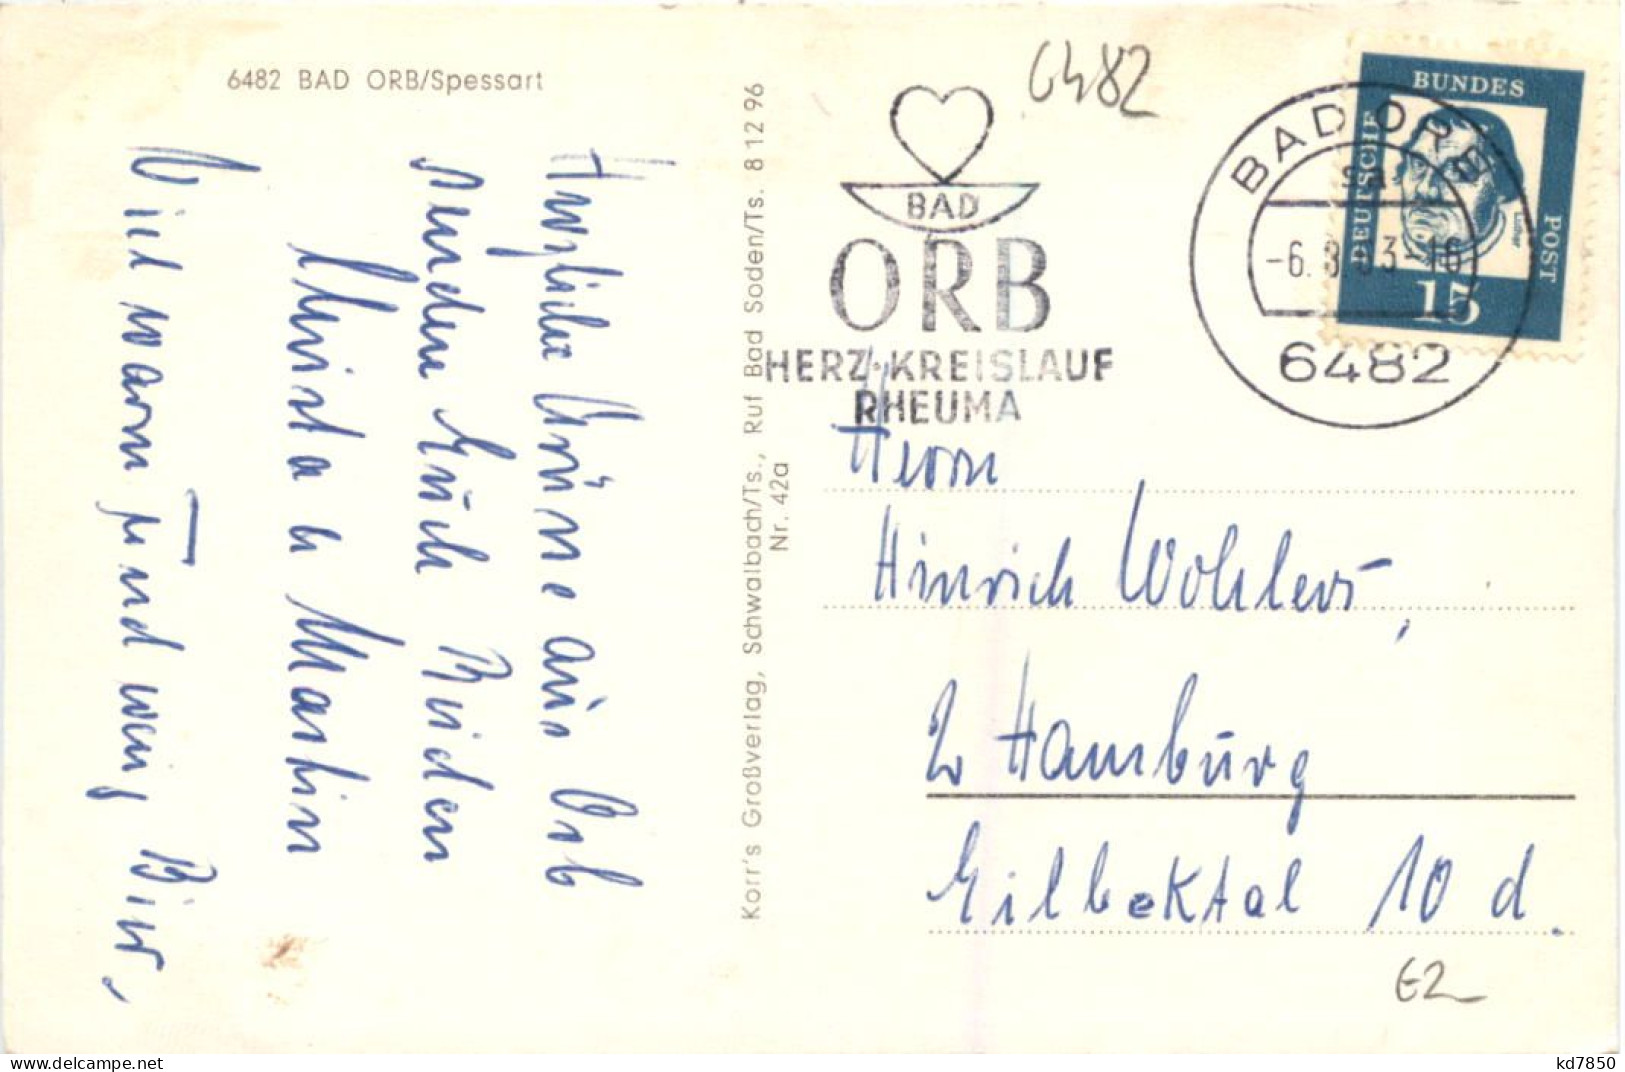 6482 BAD ORB/Spessart
Herzliche Grüße aus Orb
senden Euch Beiden
Christa u Martin
Viel warm und wenig Bier,
Korr's Großverlag, Schwalbach/Ts., Ruf Bad Soden/Ts. 8 12 96
Nr. 42a
6482
BAD
ORB
HERZ·KREISLAUF
RHEUMA
BAD ORB
sa
-6. 8. 63-16
6482
DEUTSCHE
BUNDES
POST
Luther
15
Herrn
Hinrich Wohlers,
2 Hamburg
Eilbektal 10 d.
E2
kd7850